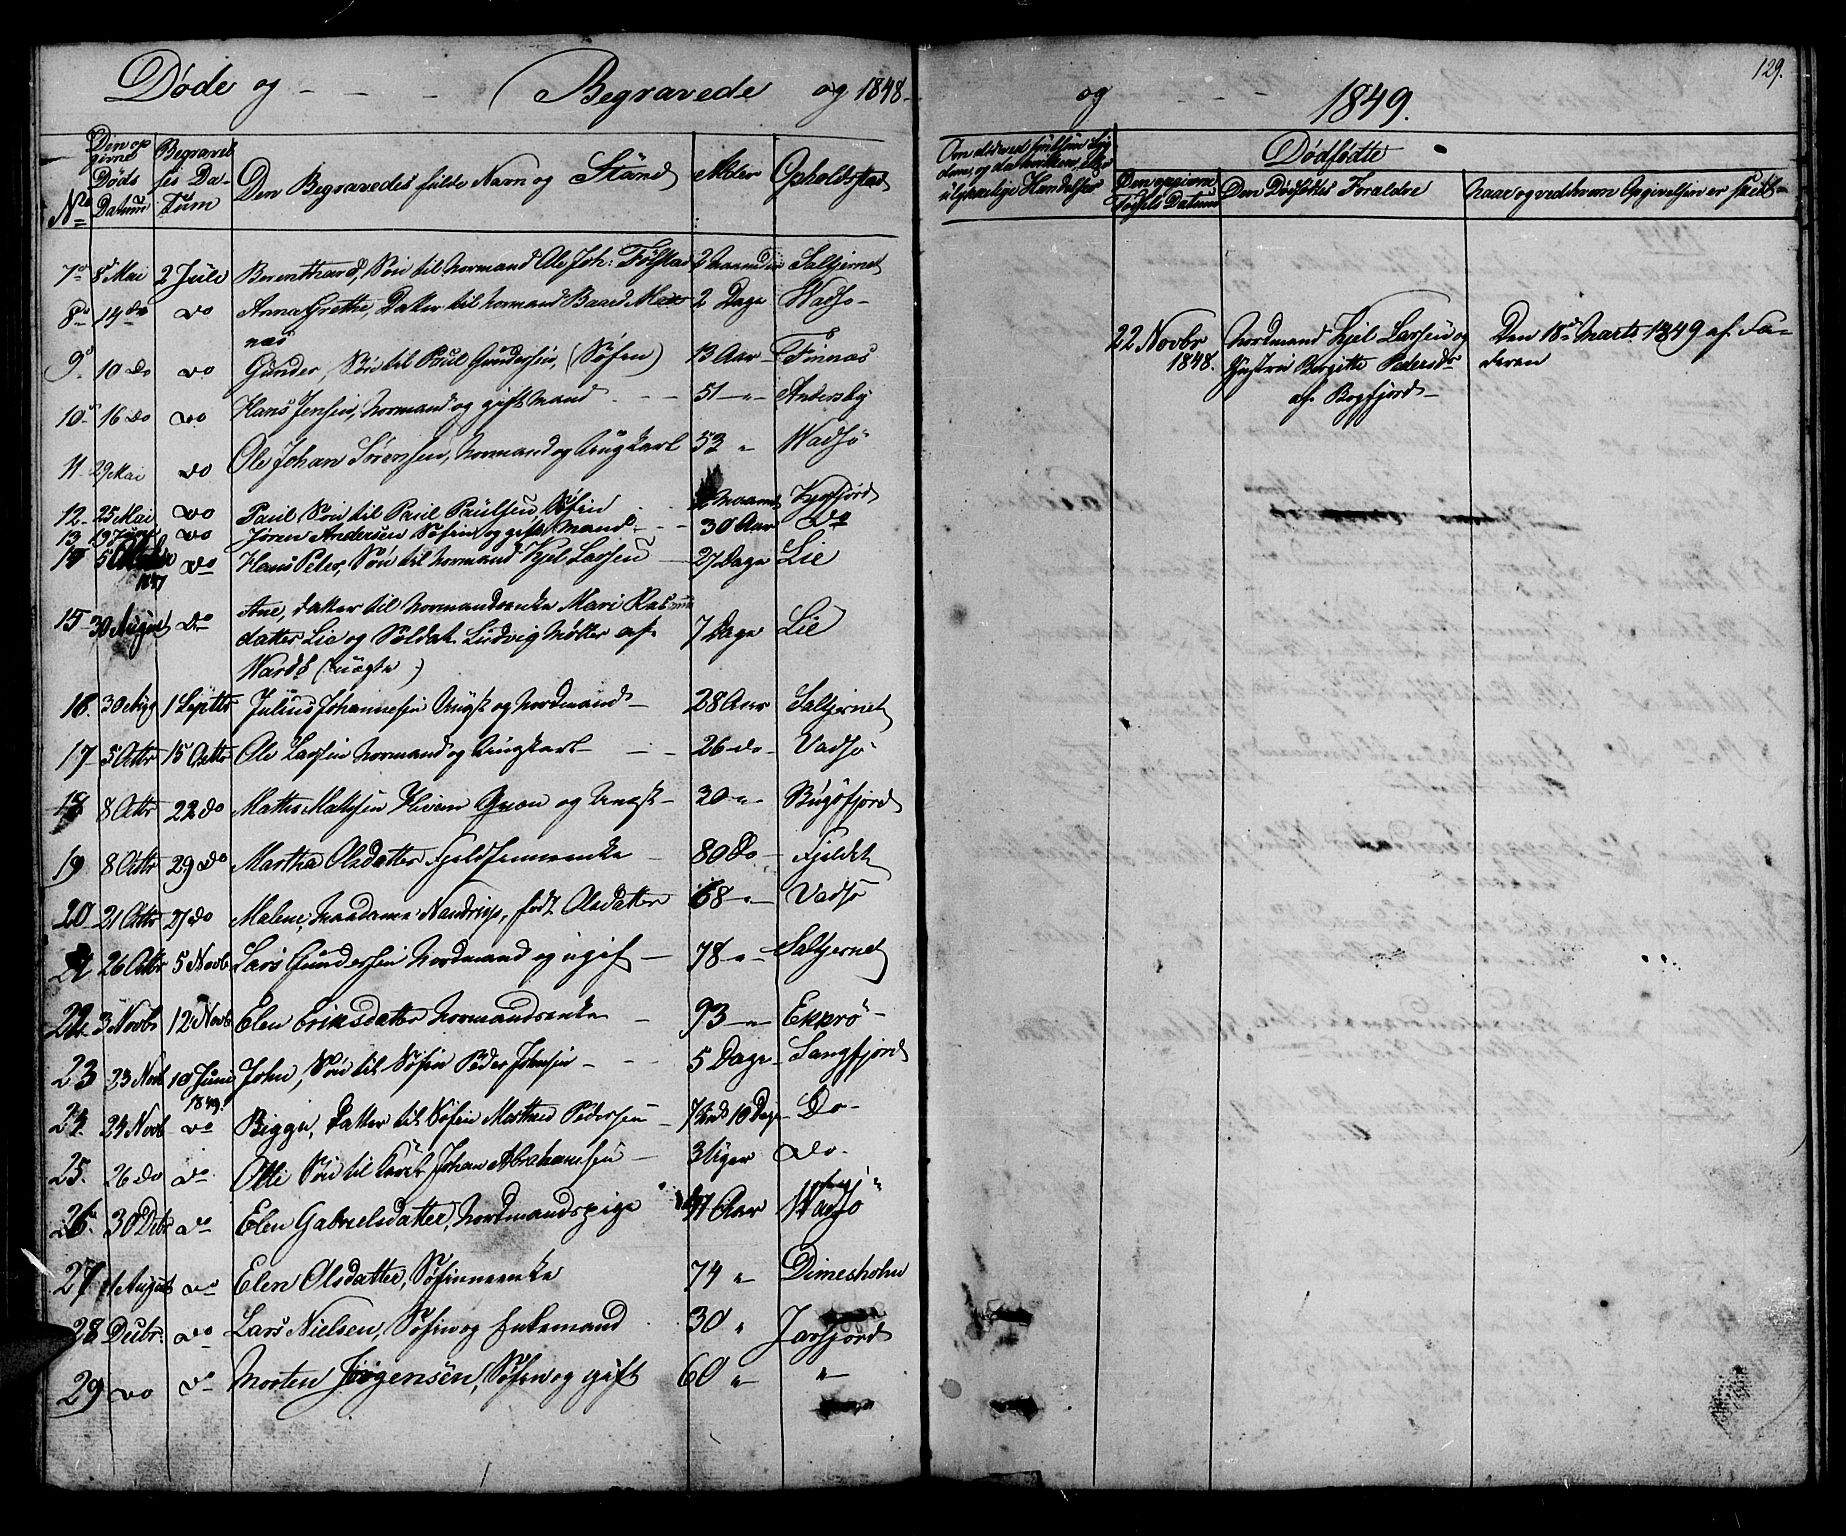 Døde og - - - Begravede og 1848-
No
Den op givne Døds Datum
Begravel ses Da- tum
Den Begravedes fulde Navn og Stand
Alder
Opholdsted
7de 8de Mai 2 Jule Berenthard, Søn til Normand Ole Joh: Følstad 2 Saltjernet
8de 14 do do Anna Grethe, Datter til Normand Baard 2 Dage Wadsø-
9de 10 do do Gunder, Søn til Poul Gundersen, (Søfin) 13 Aar- Finnæs
10de 16 do do Hans Jensen, Normand og gift Mand - - - 51 -"- Andersby
11. 29 Mai do Ole Johan Sørensen, Normand og Ungkarl 53 " Wadsø
12. 25 Mai do Paul, Søn til Poul Paulsen, Søfin
13. do Jøren Andersen Søfin og gift Mand - - 30 Aar Do
14 5 1847 do Hans Peter, Søn til Normand Kjel Larsen 27 Dage Lie
15 30 August do Ane, datter til Normandsenke Mari Rasmus
datter Lie og Soldat Ludvig Møller af 7 Dage Lie
Wardø (uægte)
16. 30 Aug 1 Septbr Julius Johannesen Ungk og Nordmand - 28 Aar Saltjernet
17 5 Octbr 15 Octbr Ole Larsen Normand og Ungkarl - - - 26 do- Vadsø
18 8 Octbr 22 do Mathis Mathisen Qvæn og Ungk - 30 "- Bugøfjord
19 8 Octbr 29 do Martha Olsdatter Fjeldfinneenke - 80 Do- Fjeldet
20 21 Octbr 27 do Malene, Madame Naudrup, født Olsdatter 68 -"- Vadsø
21 26 Octbr 5 Novb Lars Gundersen Nordmand og ugift - 78 -"- Saltjernet
22. 3 Novbr 12 Novb Elen Eriksdatter Normandsenke - 93 -"- Ekkrø-
23 23 Novb 10 Juni 1849. John, Søn til Søfin Peder Johnsen - - - 5 Dage- Langfjord
24. 24 Novb do Bigge, Datter til Søfin Mathis Pedersen - 10 Dage- Do-
25. 26 do do Olli Søn til Johan Abrahamsen - 3 Uger Do-
26. 30 Debr do Elen Gabrielsdatter, Nordmandspige Aar Wadsø
27 August do Elen Olsdatter, Søfinneenke 74 " Dimesholm
28 Decbr. do Lars Nielsen, Søfin og Enkemand 30 " Jarfjord
29 do do Morten Jørgensen, Søfin og gift 60 " "
129.
og - - 1849.
Dødfødte
Den opgivne Fødsels Datum
Den Dødfødtes Forældre
Naar og ved hvem Opgivelsen er skeet-
22 Novbr 1848.
Nordmand Kjel Larsen og
Hustru Bergitte Pedersdtr
af Bogfjord-
Den 18de Marts 1849 af Fa-
deren